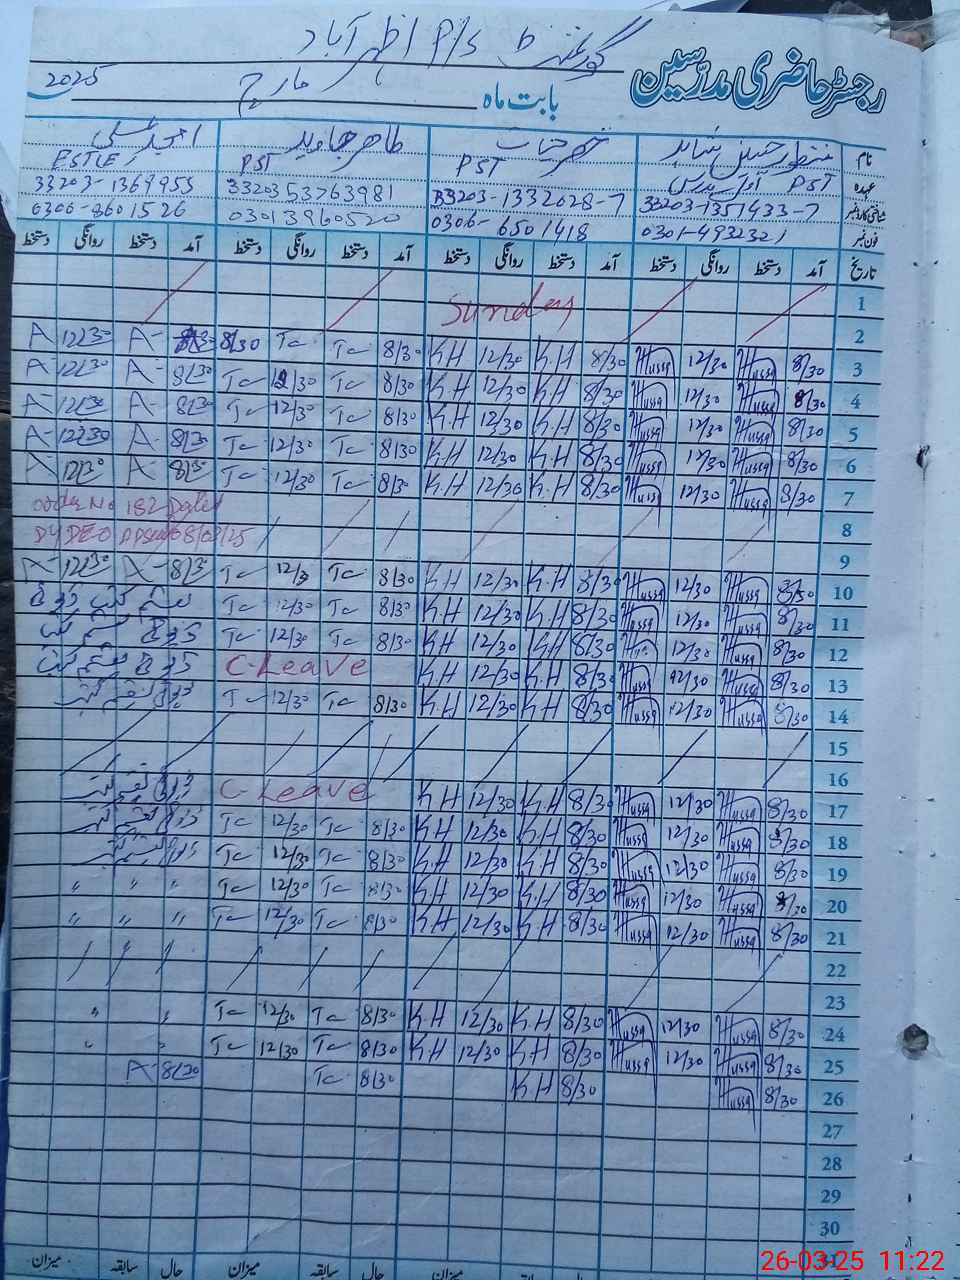 رجسٹر حاضری مدرسین
گورنمنٹ P/S اظہر آباد
بابت ماہ مارچ 2025
نام منظور حسین شاہد خضر حیات طاہر جاوید امجد علی
عہدہ PST PST PST ESTLE
شناختی کارڈ نمبر 33203-1351433-7 33203-1332028-7 33203 53763981 33203-1369955
فون نمبر 0301-4932321 0306-6501418 03013960520 0306-8601526
تاریخ آمد دستخط روانگی دستخط آمد دستخط روانگی دستخط آمد دستخط روانگی دستخط آمد دستخط روانگی دستخط
1
2 Sunday
3 8/30 Hussa 12/30 Hussa 8/30 K.H 12/30 K.H 8/30 Tc Tc 8/30 8/30 A 12/30 A
4 8/30 Hussa 12/30 Hussa 8/30 K.H 12/30 K.H 8/30 Tc 12/30 Tc 8/30 A 12/30 A
5 8/30 Hussa 12/30 Hussa 8/30 K.H 12/30 K.H 8/30 Tc 12/30 Tc 8/30 A 12/30 A
6 8/30 Hussa 12/30 Hussa 8/30 K.H 12/30 K.H 8/30 Tc 12/30 Tc 8/30 A 12/30 A
7 8/30 Hussa 12/30 Hussa 8/30 K.H 12/30 K.H 8/30 Tc 12/30 Tc 8/30 A 12/30 A
8 order No 182 Dated
9 DY DEO
10 8/30 Hussa 12/30 Hussa 8/30 K.H 12/30 K.H 8/30 Tc 12/30 Tc 8/30 A 12/30 A
11 8/30 Hussa 12/30 Hussa 8/30 K.H 12/30 K.H 8/30 Tc 12/30 Tc
12 8/30 Hussa 12/30 Hussa 8/30 K.H 12/30 K.H 8/30 Tc 12/30 Tc
13 8/30 Hussa 12/30 Hussa 8/30 K.H 12/30 K.H C-Leave
14 8/30 Hussa 12/30 Hussa 8/30 K.H 12/30 K.H 8/30 Tc 12/30 T
15
16
17 8/30 Hussa 12/30 Hussa 8/30 K.H 12/30 K.H C-Leave
18 8/30 Hussa 12/30 Hussa 8/30 K.H 12/30 K.H 8/30 Tc 12/30 Tc
19 8/30 Hussa 12/30 Hussa 8/30 K.H 12/30 K.H 8/30 Tc 12/30 Tc
20 8/30 Hussa 12/30 Hussa 8/30 K.H 12/30 K.H 8/30 Tc 12/30 Tc " " "
21 8/30 Hussa 12/30 Hussa 8/30 K.H 12/30 K.H 8/30 Tc 12/30 Tc " " "
22
23
24 8/30 Hussa 12/30 Hussa 8/30 K.H 12/30 K.H 8/30 Tc 12/30 Tc " "
25 8/30 Hussa 12/30 Hussa 8/30 K.H 12/30 K.H 8/30 Tc 12/30 Tc " "
26 8/30 Hussa 8/30 K.H 8/30 Tc A
27
28
29
30
31
حال سابقہ میزان حال سابقہ میزان
26-03-25 11:22